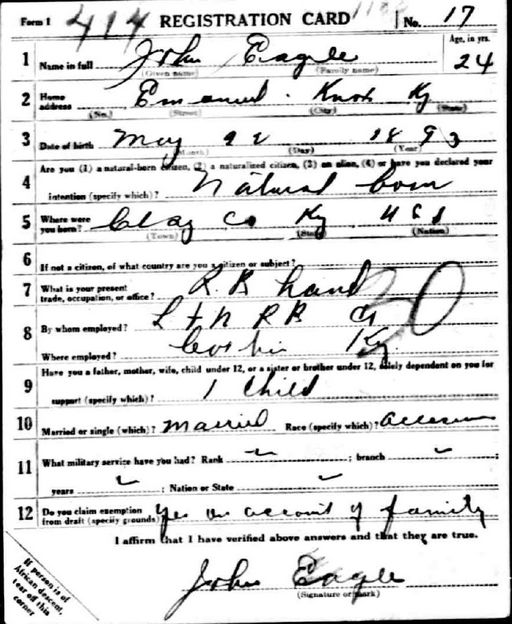 Form 1 414 REGISTRATION CARD No. 17
Age, in yrs.
1 Name in full John Eagle 24
(Given name) (Family name)
2 Home address Emanuel Knox Ky
(No.) (Street) (City) (State)
3 Date of birth May 22 1893
(Month) (Day) (Year)
4 Are you (1) a natural-born citizen, (2) a naturalized citizen, (3) an alien, (4) or have you declared your
intention (specify which)? Natural born
5 Where were you born? Clay Co Ky U S
(Town) (State) (Nation)
6 If not a citizen, of what country are you a citizen or subject?
7 What is your present trade, occupation, or office? R. R. hand
8 By whom employed? L & N R R Co
Where employed? Corbin Ky
9 Have you a father, mother, wife, child under 12, or a sister or brother under 12, solely dependent on you for
support (specify which)? 1 Child
10 Married or single (which)? Married Race (specify which)?
11 What military service have you had? Rank ; branch ;
years ; Nation or State
12 Do you claim exemption from draft (specify grounds) Yes on account of family
I affirm that I have verified above answers and that they are true.
John Eagle
(Signature or mark)
If person is of
African descent,
tear off this
corner